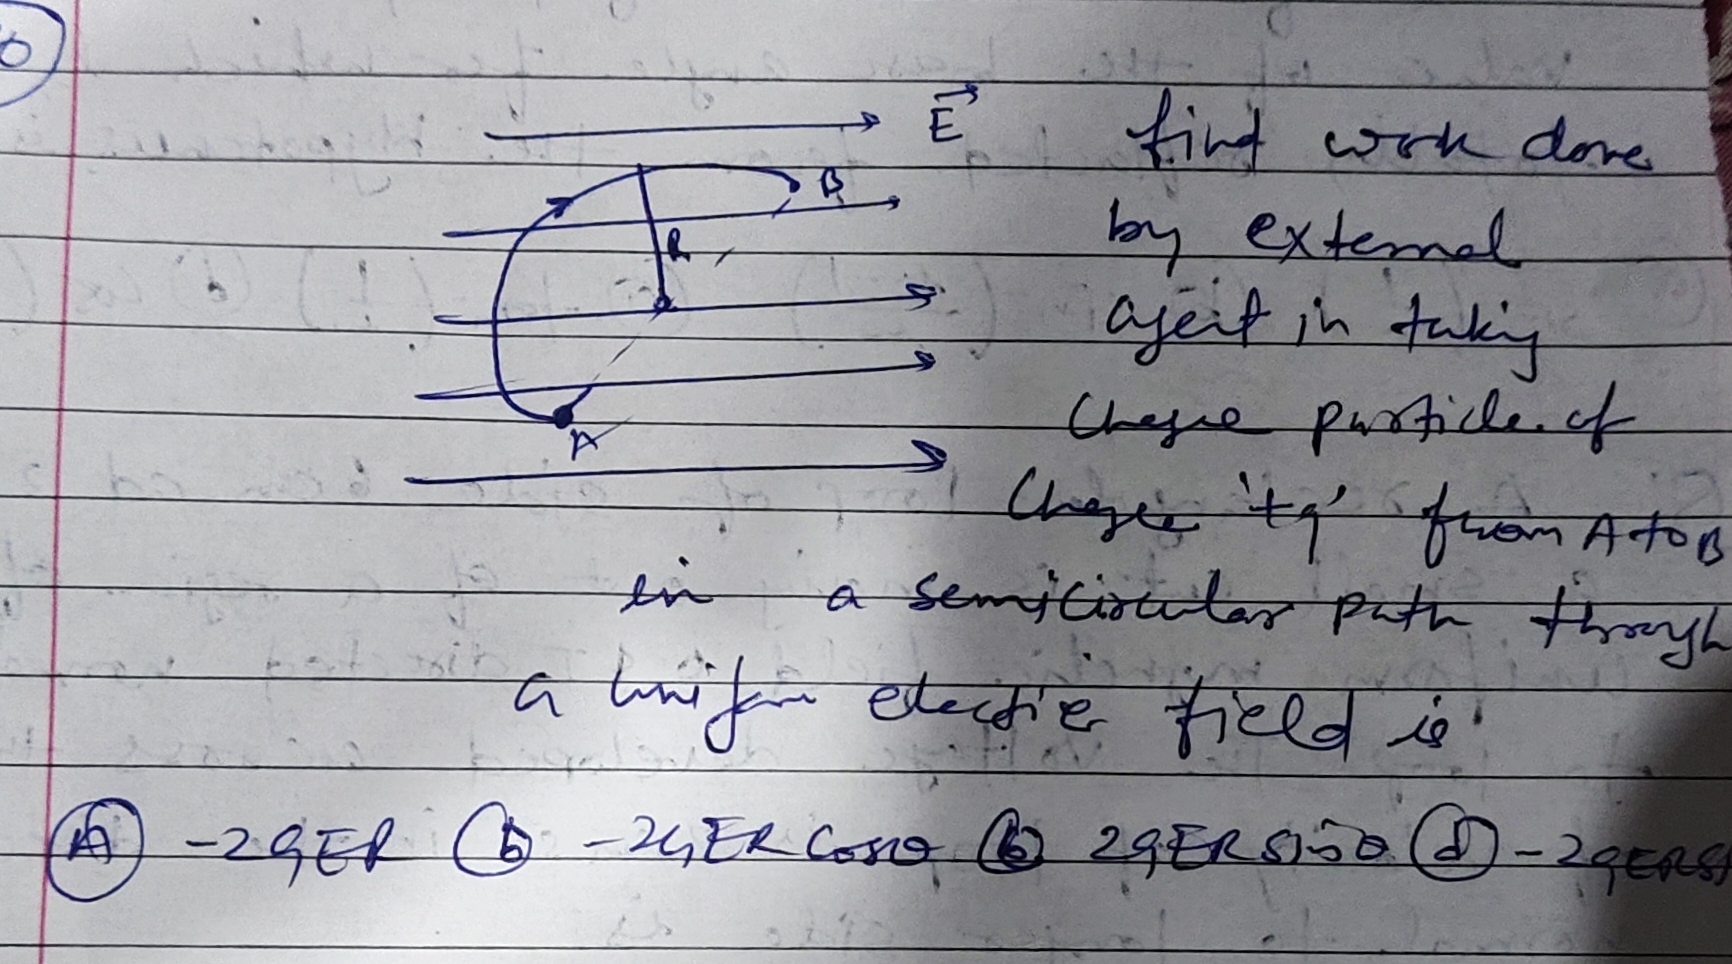 E
find work done
B
by external
R
agent in taking
A
Charge particle of
Charge '+q' from A to B
in a semicircular path through
a uniform electric field is
(A) -2qER (b) -2qER Cosθ (b) 2qER sinθ (d) -2qERS